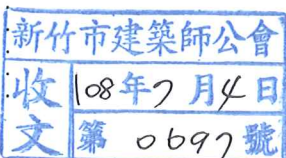 新竹市建築師公會
收文
108年7月4日
第 0697 號